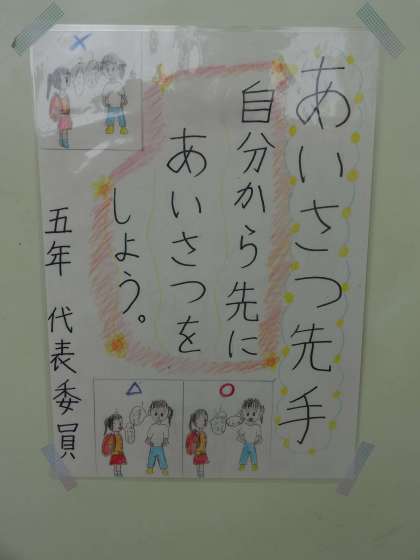 あいさつ先手
自分から先に
あいさつを
しよう。
五年 代表委員